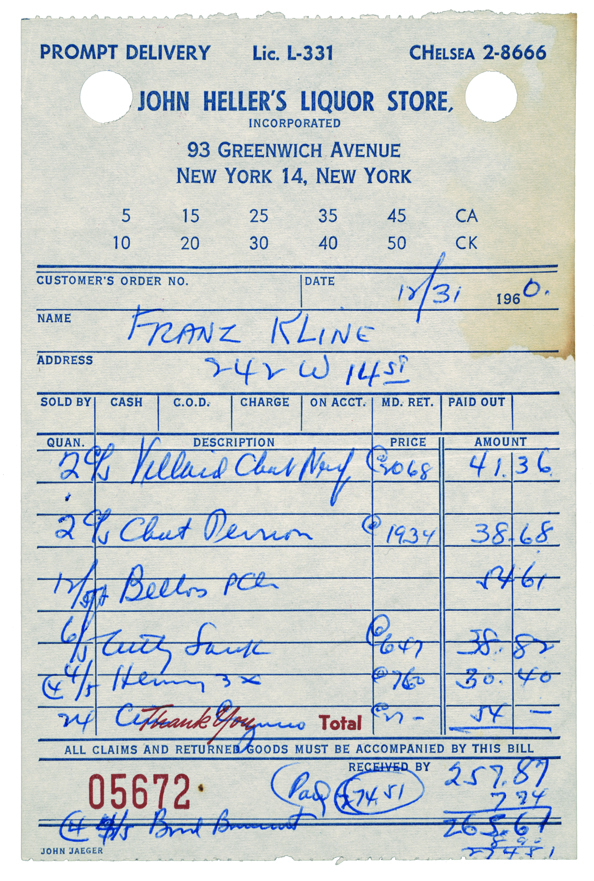 PROMPT DELIVERY Lic. L-331 CHELSEA 2-8666
JOHN HELLER'S LIQUOR STORE,
INCORPORATED
93 GREENWICH AVENUE
NEW YORK 14, NEW YORK
5 15 25 35 45 CA
10 20 30 40 50 CK
CUSTOMER'S ORDER NO. DATE 12/31 1960.
NAME FRANZ KLINE
ADDRESS 242 W 14 ST
SOLD BY CASH C.O.D. CHARGE ON ACCT. MD. RET. PAID OUT
QUAN. DESCRIPTION PRICE AMOUNT
2 @ 2068 41.36
2 Chat @ 1934 38.68
12/5 54 61
6/5 Cutty Sark @ 647 38.82
4/5 @ 760 30.40
24 Thank You Total @ 27- 54 -
ALL CLAIMS AND RETURNED GOODS MUST BE ACCOMPANIED BY THIS BILL
RECEIVED BY 257.87
05672 Paid 274.51 7 74
4/5 265.61
JOHN JAEGER 274 51